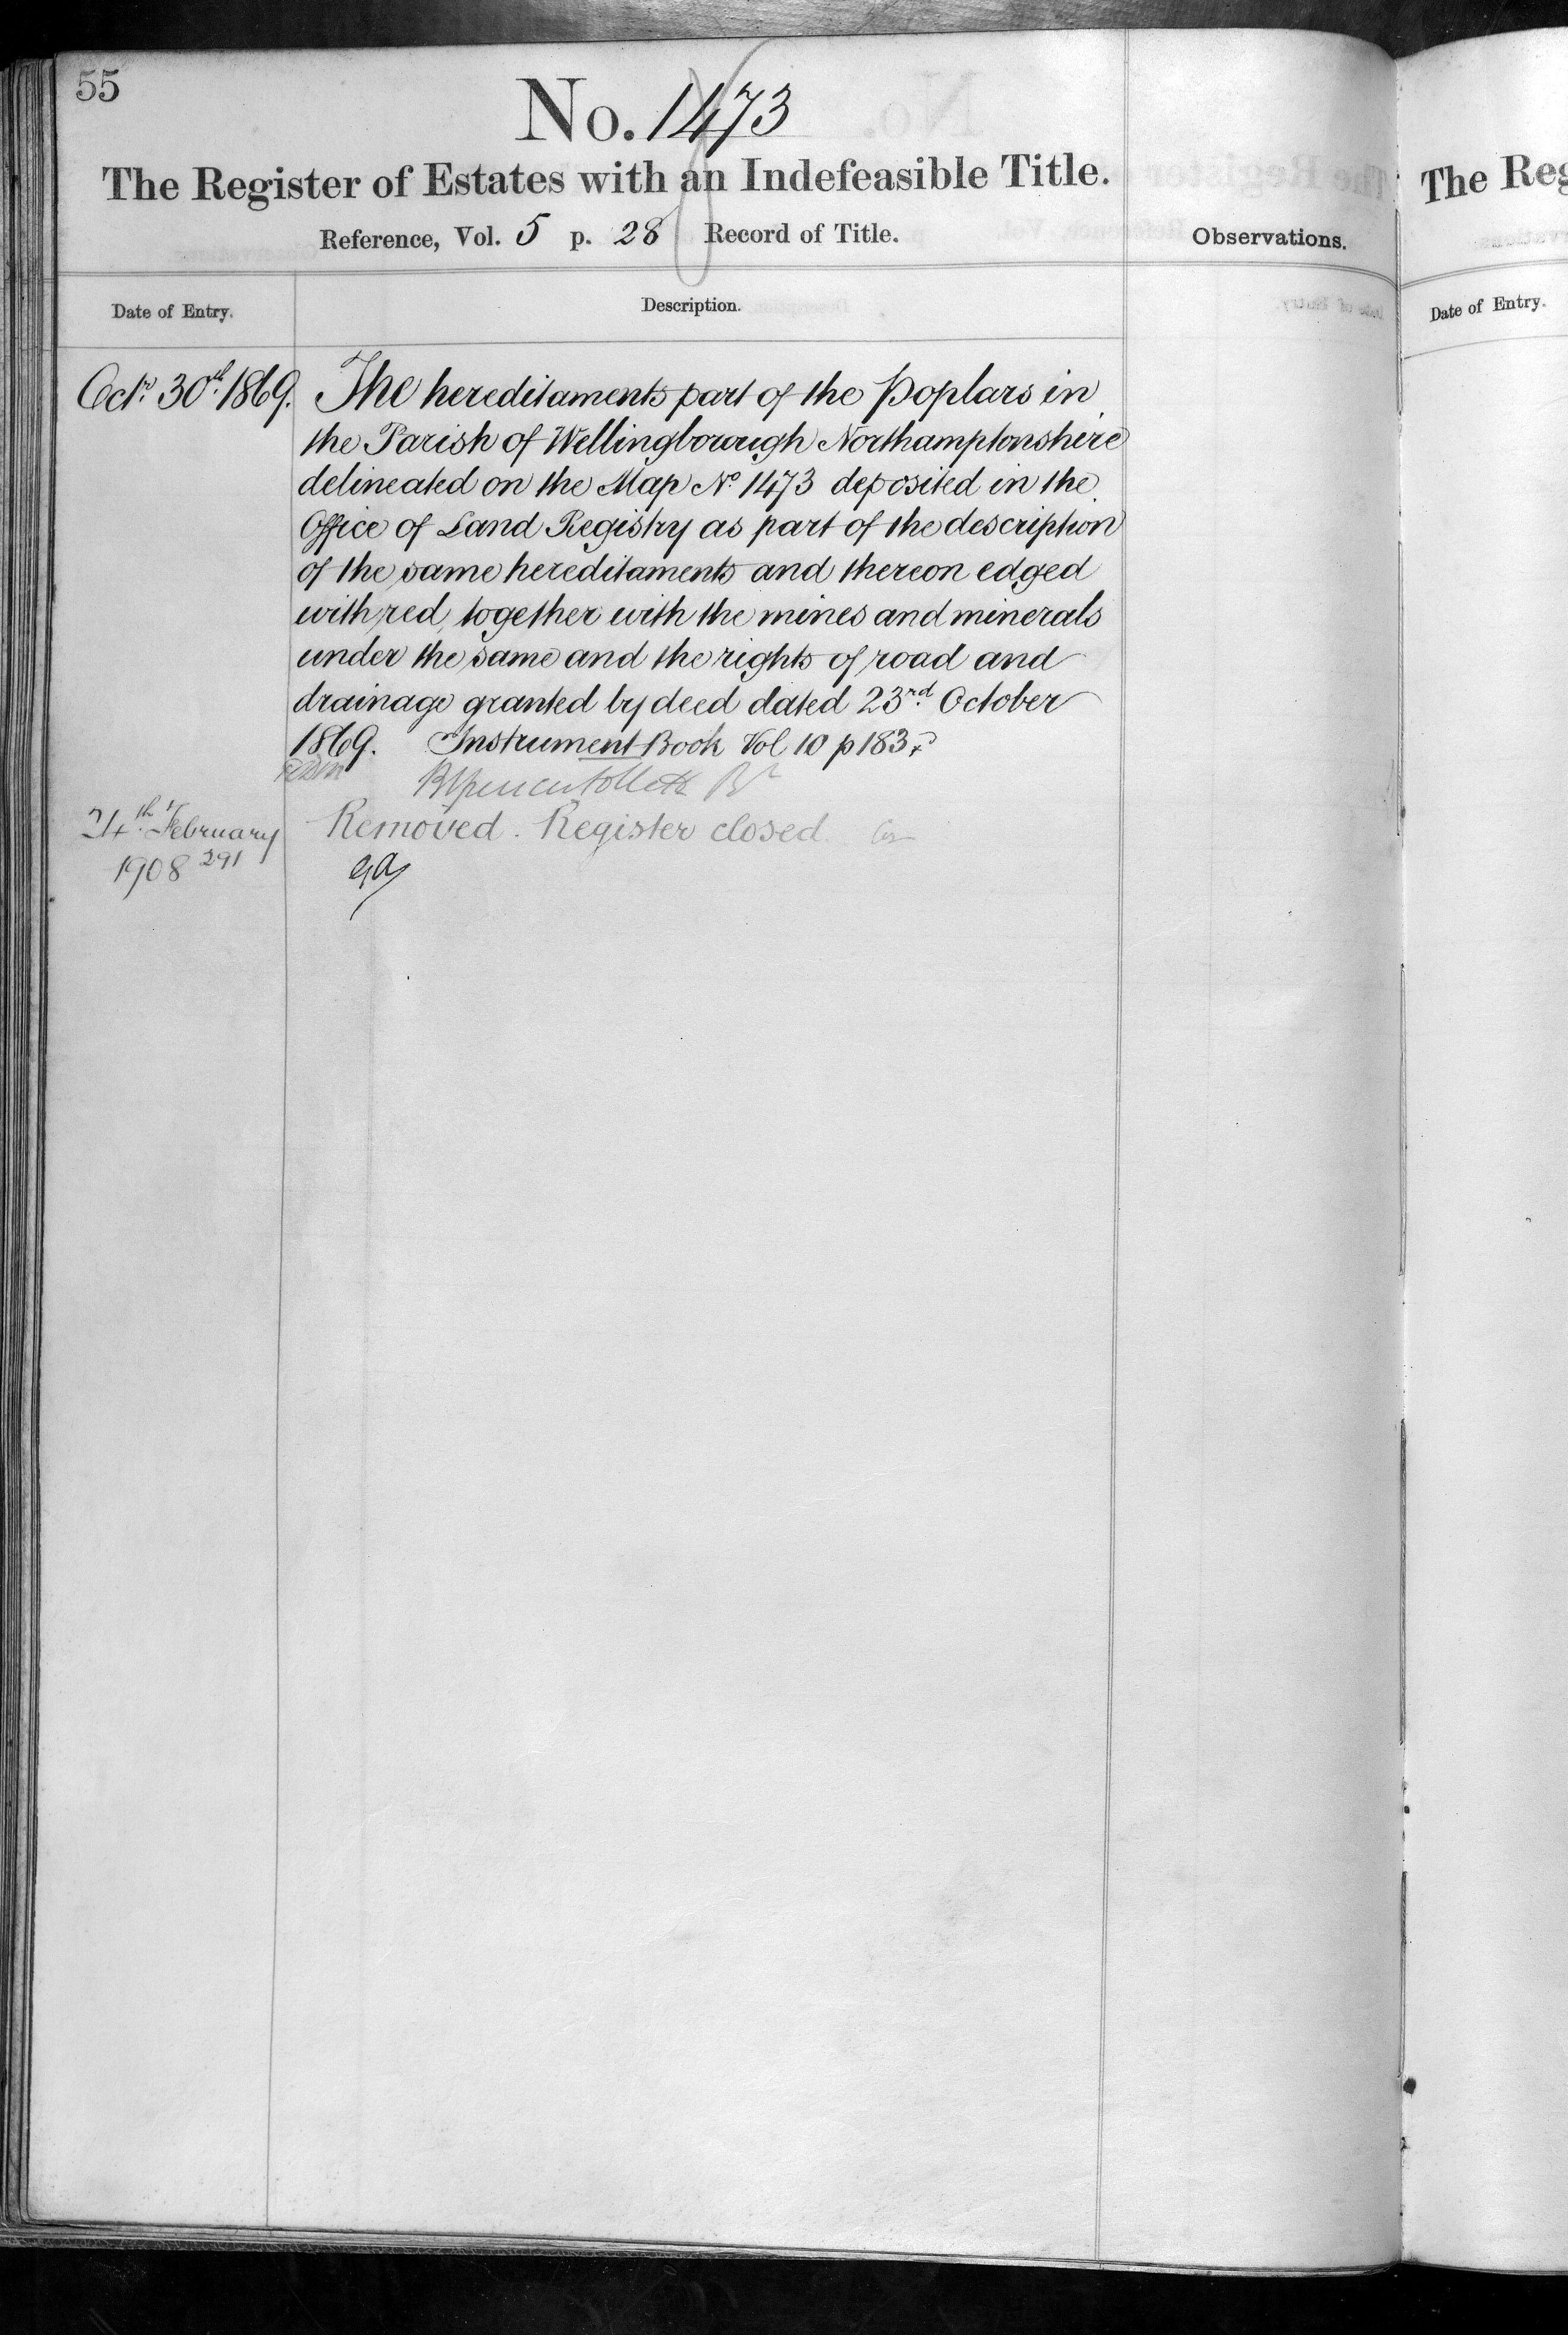 55
No. 1473
The Register of Estates with an Indefeasible Title.
Reference, Vol. 5 p. 28 Record of Title.
Observations.
Date of Entry.
Description.
Octr. 30th. 1869.
The hereditaments part of the Poplars in
the Parish of Wellingborough Northamptonshire
delineated on the Map No. 1473 deposited in the
Office of Land Registry as part of the description
of the same hereditaments and thereon edged
with red, together with the mines and minerals
under the same and the rights of road and
drainage granted by deed dated 23rd. October
1869. Instrument Book Vol 10 p 183
24th. February
1908 291
Removed. Register closed.
The Reg
Date of Entry.